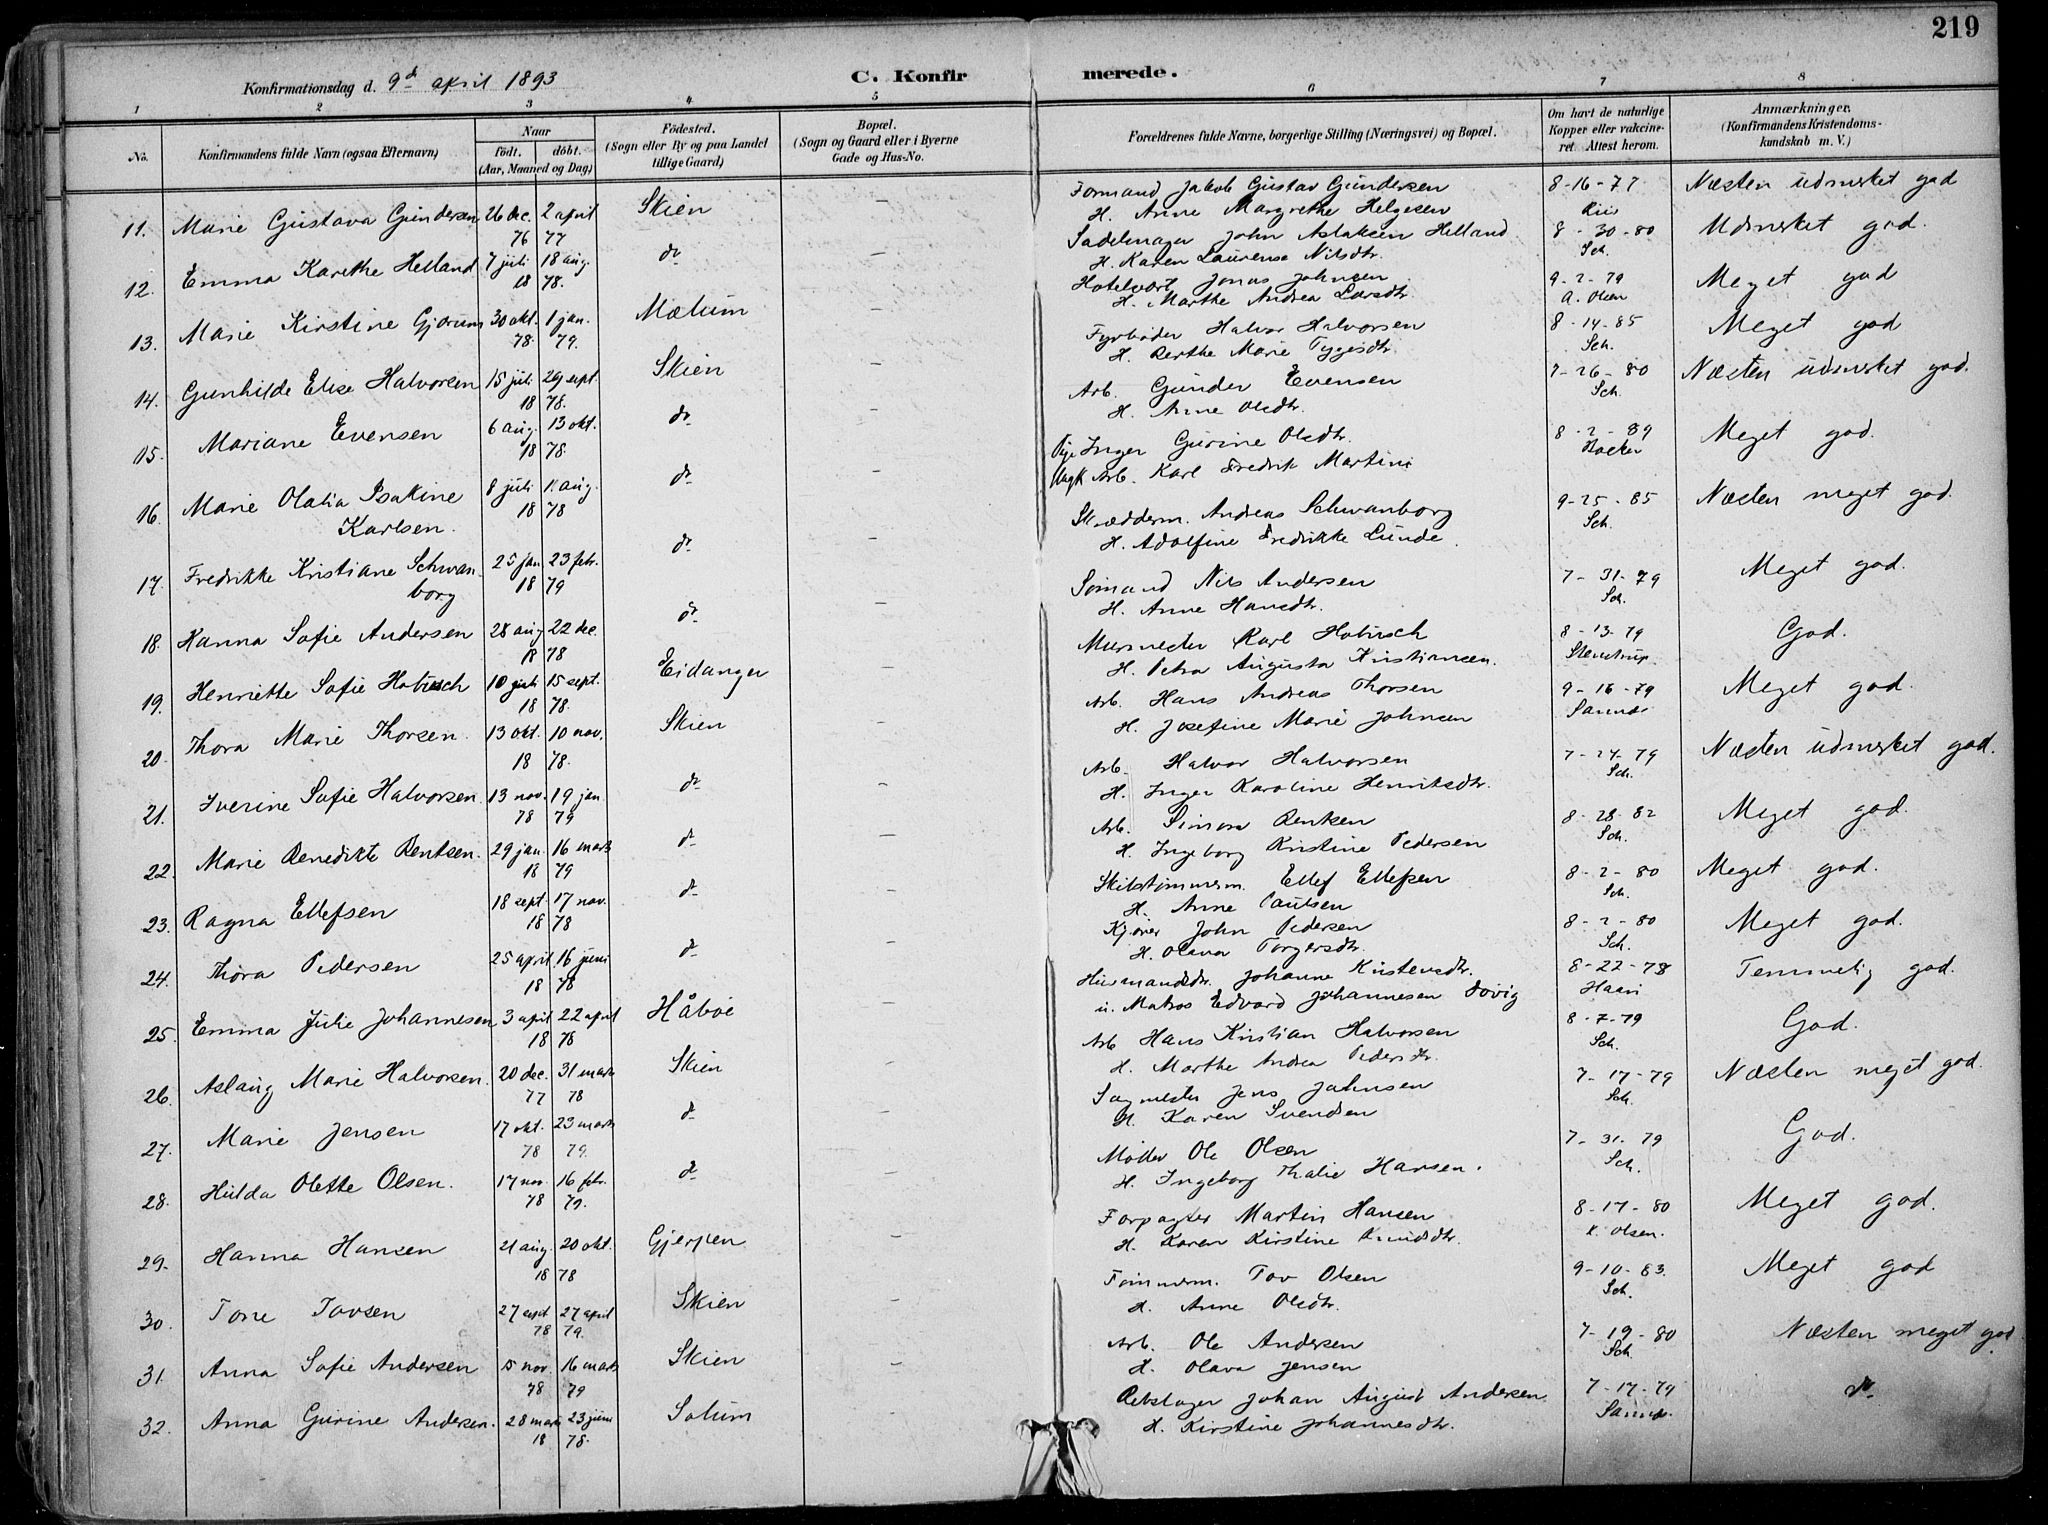 219
Konfirmationsdag d. 9d april 1893
C. Konfirmerede.
1 2 3 4 5 6 7 8
No.
Konfirmandens fulde Navn (ogsaa Efternavn)
Naar
födt. döbt.
(Aar, Maaned og Dag)
Födested.
(Sogn eller By og paa Landet
tillige Gaard)
Bopæl.
(Sogn og Gaard eller i Byerne
Gade og Hus-No.
Forældrenes fulde Navne, borgerlige Stilling (Næringsvei) og Bopæl.
Om havt de naturlige
Kopper eller vakcine-
ret. Attest herom.
Anmærkninger.
(Konfirmandens Kristendoms-
kundskab m. V.)
11. Marie Gustava Gundersen 26 dec. 76 2 april 77 Skien - Formand Jakob Gustav Gundersen 8-16-77 Næsten udmerket god
H. Anne Margrethe Helgesen Riis
12. Emma Karethe Helland 7 juli 18 aug. 18 78. do - Sadelmager John Aslaksen Helland 8-30-80 Udmerket god.
H. Karen Laurense Nilsdtr. Sch.
13. Marie Kirstine Gjørum 30 okt. 78. 1 jan. 79. Mælum - Hotelvært Jonas Johnsen 9-2-79 Meget god
H. Marthe Andrea Larsdtr. A. Olsen
14. Gunhilde Elise Halvorsen 15 juli 29 sept. 18 78. Skien - Fyrbøder Halvor Halvorsen 8-14-85 Meget god
H. Berthe Marie Tygesdtr. Sch.
15. Mariane Evensen 6 aug. 13 okt. 18 78. do - Arb. Gunder Evensen 7-26-80 Næsten udmerket god.
H. Anne Olsdtr. Sch.
16. Marie Olalia Isakine 8 juli 11 aug. 18 78 do - Pige Inger Gurine Olsdtr. 8-2-89 Meget god.
Karlsen. Ungk. Arb. Karl Fredrik Martini
17. Fredrikke Kristiane Schwan- 25 jan 23 febr. 18 79 do - Skrædderm. Andreas Schwanborg 9-25-85 Næsten meget god.
borg H. Adolfine Fredrikke Lunde. Sch.
18. Hanna Sofie Andersen 28 aug 22 dec. 18 78 do - Sømand Nils Andersen 7-31-79 Meget god.
H. Anne Hansdtr. Sch.
19. Henriette Sofie Hobusch 10 juli 15 sept. 18 78. Eidanger - Murmester Karl Hobusch 8-13-79 God.
H. Petra Augusta Kristiansen. Stenstrup.
20. Thora Marie Thorsen. 13 okt. 10 nov. 18 78. Skien - Arb. Hans Andreas Thorsen 9-16-79 Meget god.
H. Josefine Marie Johnsen
21. Iverine Sofie Halvorsen. 13 nov. 78 19 jan 79 do - Arb. Halvor Halvorsen 7-24-79 Næsten udmerket god.
H. Inger Karoline Henriksdtr. Sch.
22. Marie Benedikte Bentsen. 29 jan. 16 marts 18 79 do - Arb. Simon Bentsen 8-28-82 Meget god.
H. Ingeborg Kristine Pedersen Sch.
23. Ragna Ellefsen 18 sept. 17 nov. 18 78 do - Skibstømmerm. Ellef Ellefsen 8-2-80 Meget god.
H. Anne Paulsen Sch.
24. Thora Pedersen 25 april 16 juni 18 78 do - Kjører John Pedersen 8-2-80 Meget god.
H. Olava Torgersdtr. Sch.
25. Emma Julie Johannesen 3 april 22 april 18 78 Håbøe - Husmandsdtr. Johanne Kristensdtr. 8-22-78 Temmelig god.
u. Matros Edvard Johannesen Hovig
26. Aslaug Marie Halvorsen. 20 dec. 77 31 marts 78 Skien - Arb Hans Kristian Halvorsen 8-7-79 God.
H. Marthe Andrea Pedersdtr. Sch.
27. Marie Jensen 17 okt. 78 23 marts 79. do - Sagmester Jens Johnsen 7-17-79 Næsten meget god.
H. Karen Svendsen Sch.
28. Hulda Olette Olsen. 17 nov. 78 16 febr. 79. do - Møller Ole Olsen 7-31-79 God.
H. Ingeborg Thalie Hansen. Sch.
29. Hanna Hansen 21 aug. 20 okt. 18 78 Gjerpen - Forpagter Martin Hansen 8-17-80 Meget god.
H. Karen Kirstine Knudsdtr. K. Olsen.
30. Tone Tovsen 27 sept 78 27 april 79. Skien - Tømmerm. Tov Olsen 9-10-83. Meget god
H. Anne Olsdtr. Sch.
31. Anna Sofie Andersen 15 nov. 78 16 marts 79 Skien - Arb. Ole Andersen 7-19-80 Næsten meget god.
H. Olava Jensen Sch.
32. Anna Gurine Andersen. 28 marts 23 juni 18 78. Solum - Rebslager Johan August Andersen. 7-17-79 do
H. Kirstine Johannesdtr.